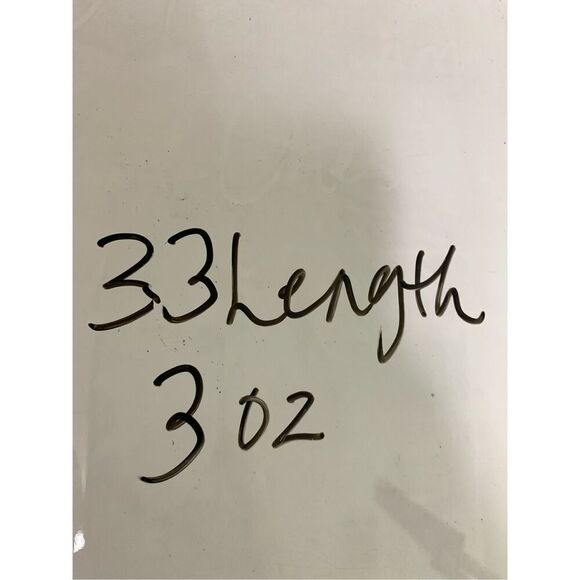 33 Length
3 oz